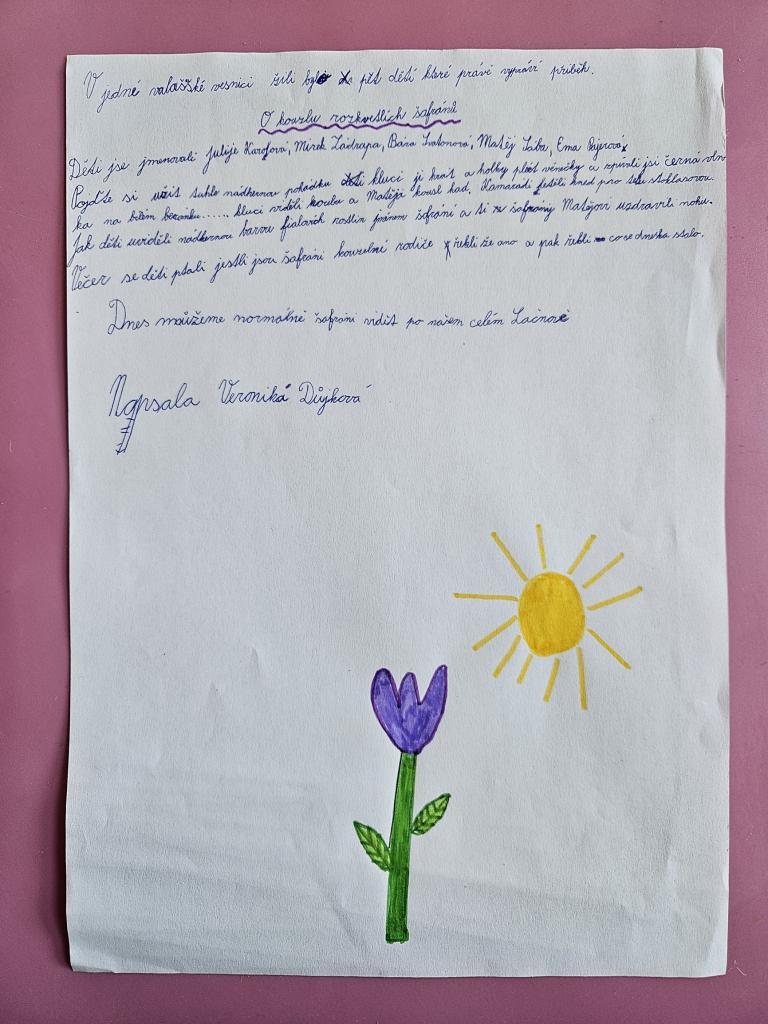 V jedné valašské vesnici žili bylo pět dětí které právě vypráví příběh.
O kouzlu rozkvetlích šafránů
Děti jse jmenovali Julije Karafová, Mirek Zádrapa, Bára Svatonová, Matěj Sába, Ema Pajerová
Pojďte si užít tuhle nádhernou pohádku kluci jí hrát a holky plést věnečky a zpívali jsi černá vlno
ka na bílém beránku...... kluci viděli kouli a Matěja kousl had. Kamarádi jseděli hned pro stoklasovou.
Jak děti uviděli nádhernou barvu fialovích rostlin jménem šafrání a ti šafrániny Matějovi uzdravili nohu.
Večer se děti ptali jestli jsou šafrání kouzelné rodiče řekli že ano a pak řekli co se dneska stalo.
Dnes můžeme normálně šafrání vidět po našem celém Lačnově
Napsala Veronika Důjková